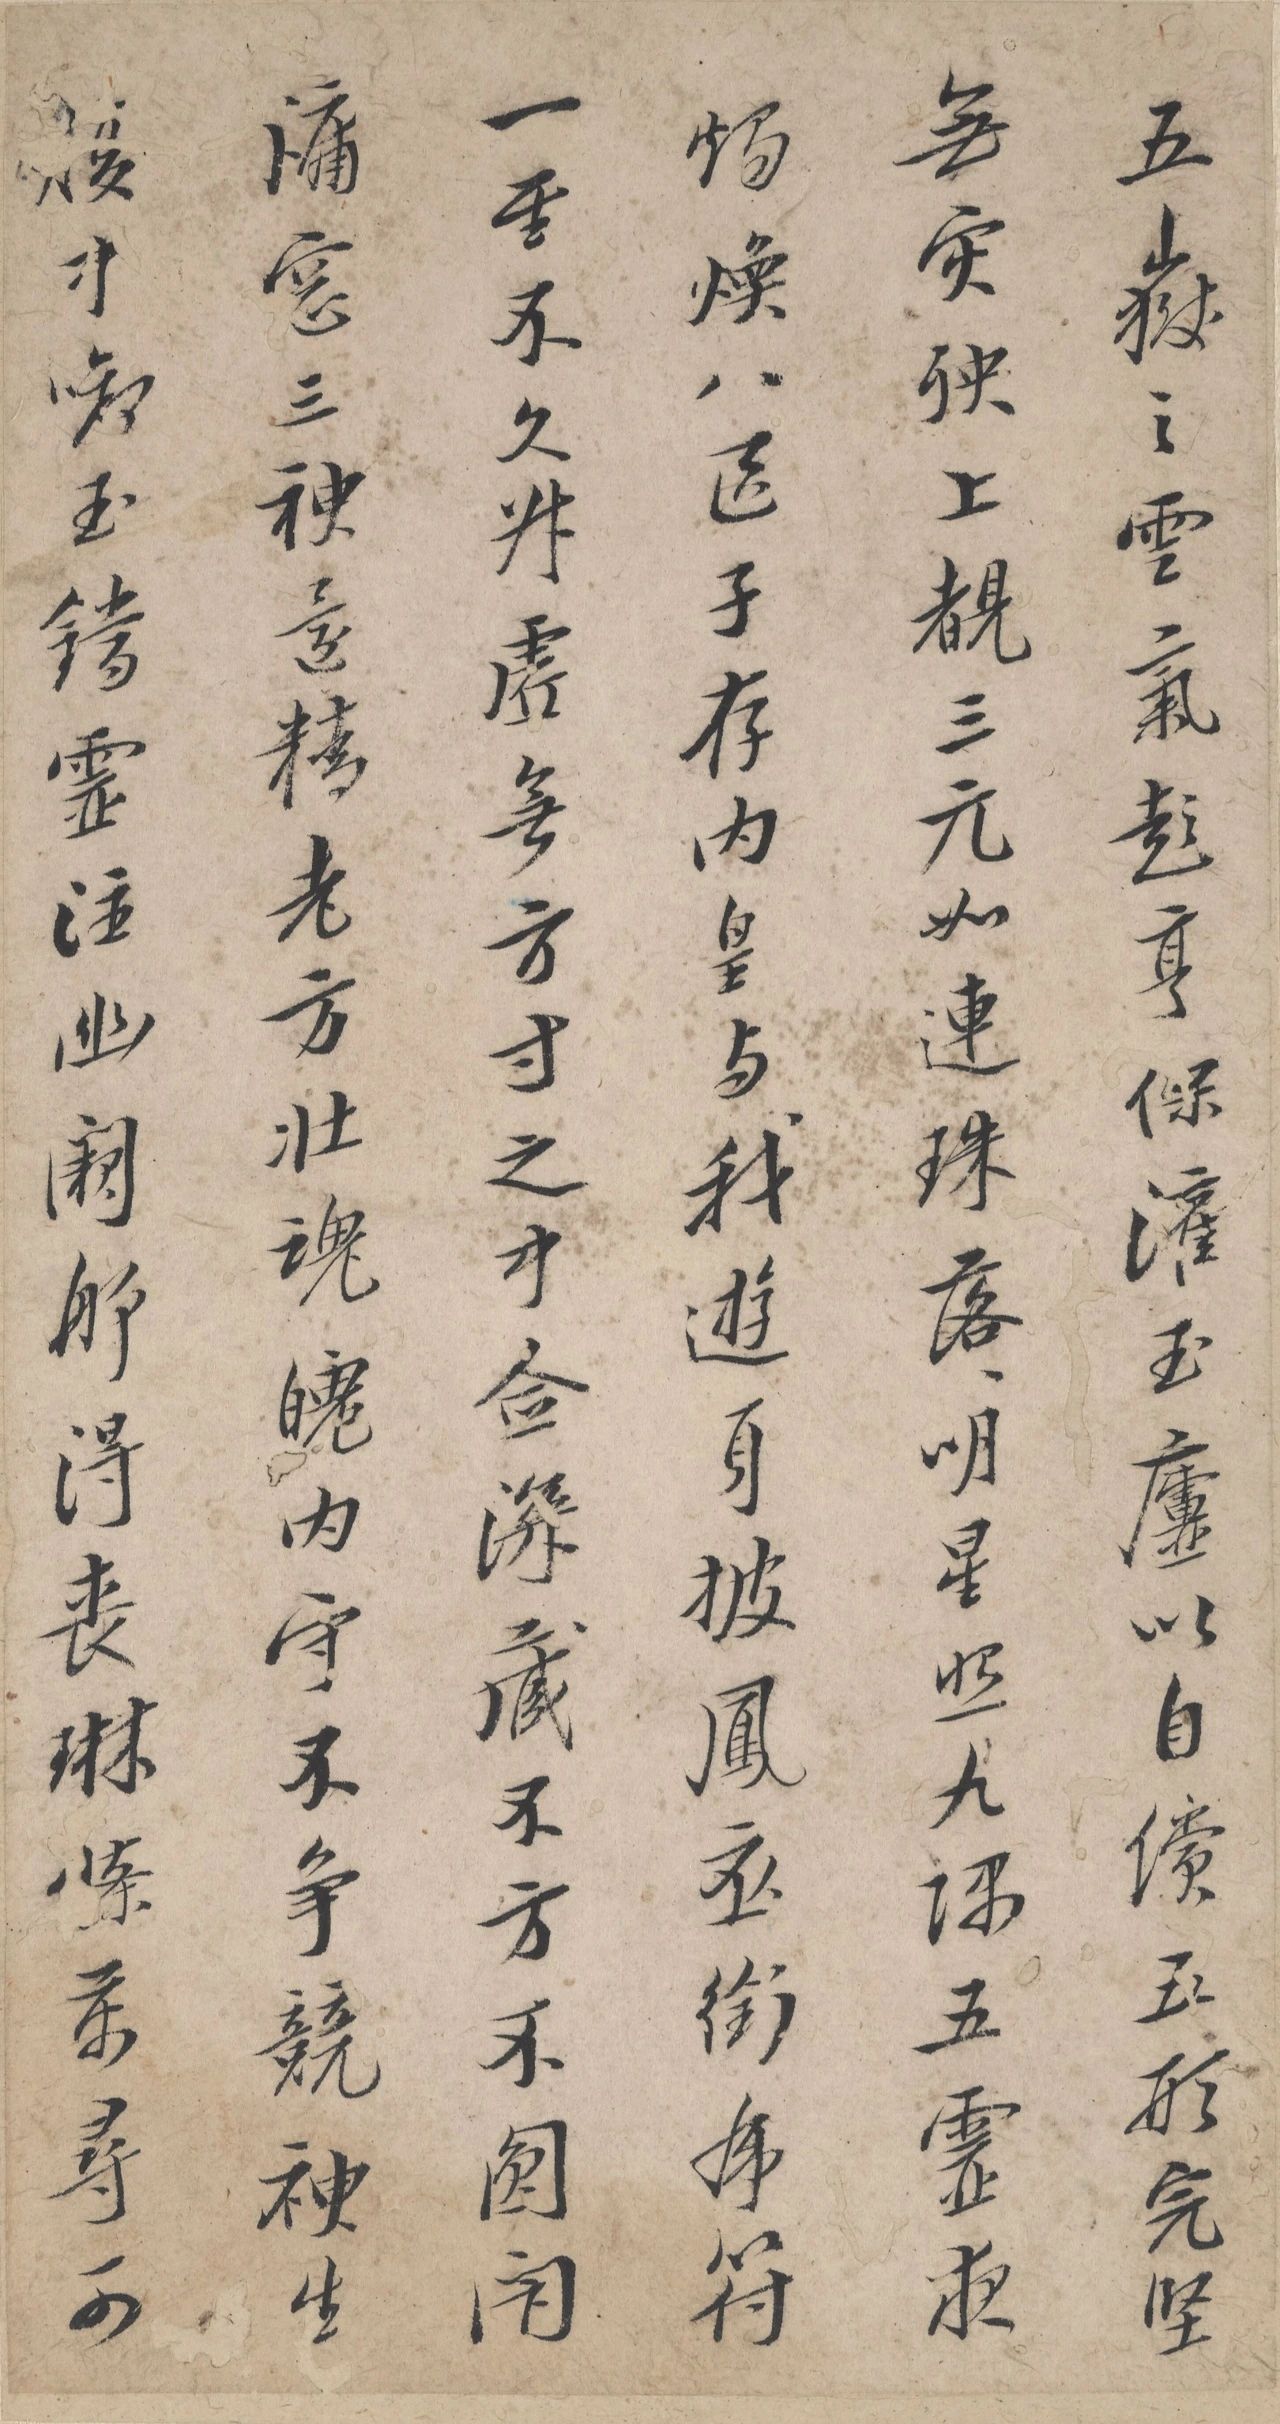 五嶽之雲氣彭亨保灌玉廬以自償五形完堅
無灾殃上覩三元如連珠落落明星照九隅五靈夜
燭煥八區子存内皇与我遊身披鳳衣銜虎符
一至不久昇虛無方寸之中念深藏不方不圓閉
牖窓三神還精老方壯魂魄内守不争競神生
腹中啣玉鐺靈注幽闕那得喪琳條萬尋可